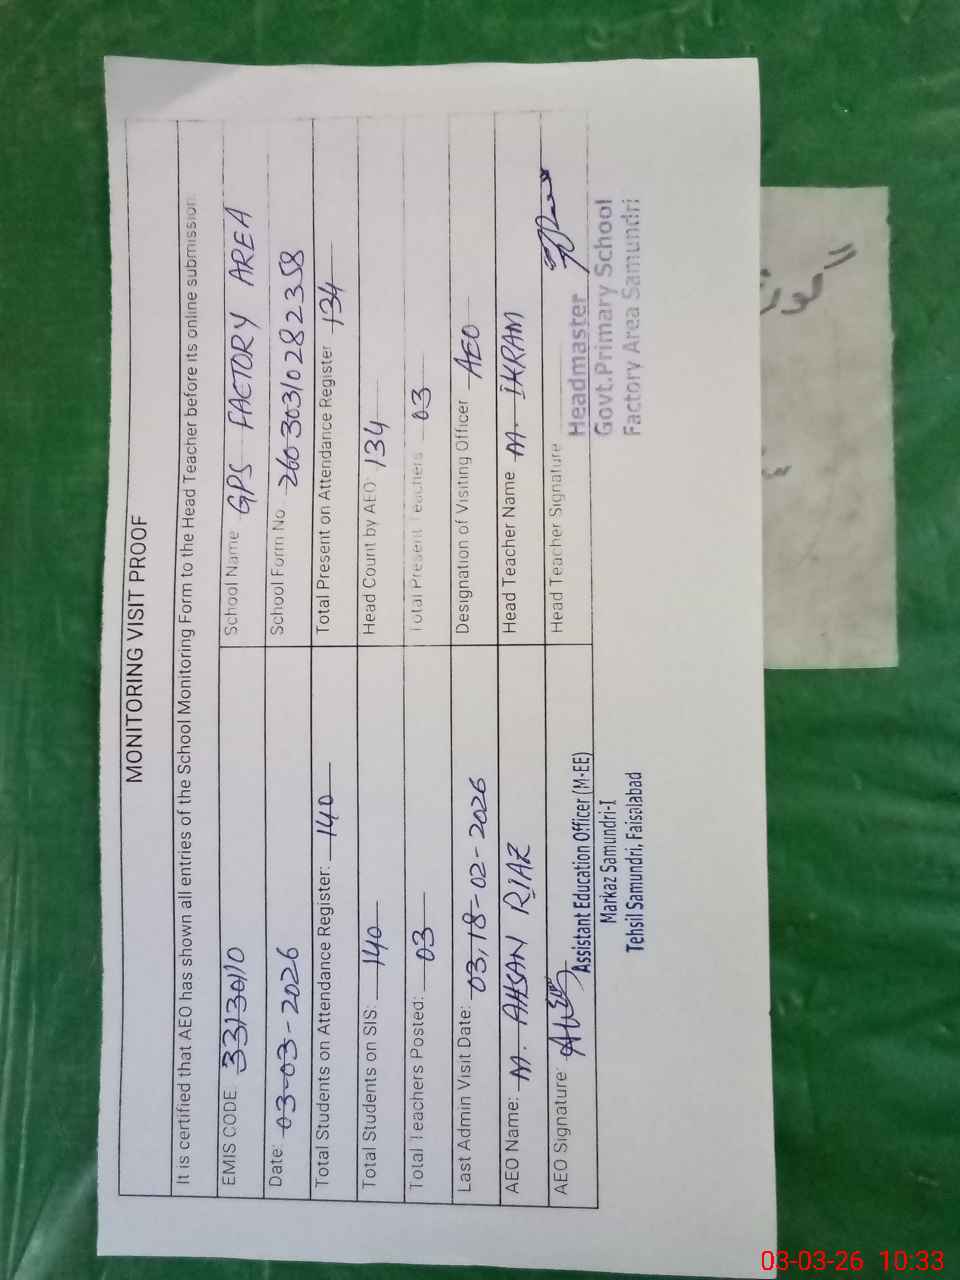 MONITORING VISIT PROOF
It is certified that AEO has shown all entries of the School Monitoring Form to the Head Teacher before its online submission.
EMIS CODE 33130110 School Name GPS FACTORY AREA
Date: 03-03-2026 School Form No 26030310282358
Total Students on Attendance Register: 140 Total Present on Attendance Register 134
Total Students on SIS: 140 Head Count by AEO: 134
Total Teachers Posted: 03 Total Present Teachers 03
Last Admin Visit Date: 03, 18-02-2026 Designation of Visiting Officer AEO
AEO Name: M. AHSAN RIAZ Head Teacher Name M. IKRAM
AEO Signature: Head Teacher Signature
Assistant Education Officer (M-EE)
Markaz Samundri-I
Tehsil Samundri, Faisalabad
Headmaster
Govt. Primary School
Factory Area Samundri
03-03-26 10:33